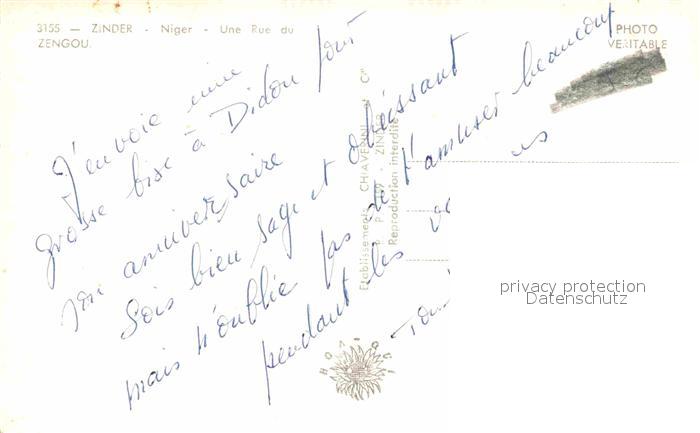 3155 — ZINDER - Niger - Une Rue du
ZENGOU.
PHOTO
VERITABLE
J'envoie une
grosse bise à Didou pour
son anniversaire
Sois bien sage et obéissant
mais n'oublie pas de t'amuser beaucoup
pendant les
Etablissements CHIAVERINI et Cⁱᵉ
ZIND
Reproduction interdite
HOA-QUI
privacy protection
Datenschutz